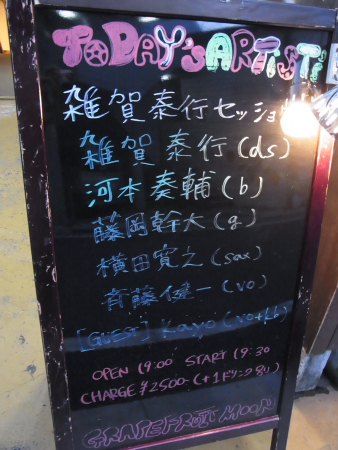 TODAY'S ARTISTS
雑賀泰行セッション
雑賀 泰行(ds)
河本奏輔(b)
藤岡幹大(g)
横田寛之(sax)
斉藤健一(vo)
[GUEST] Kayo(vo+kb)
OPEN 19:00 START 19:30
CHARGE ¥2500-(+1ドリンク
GRAPEFRUIT MOON